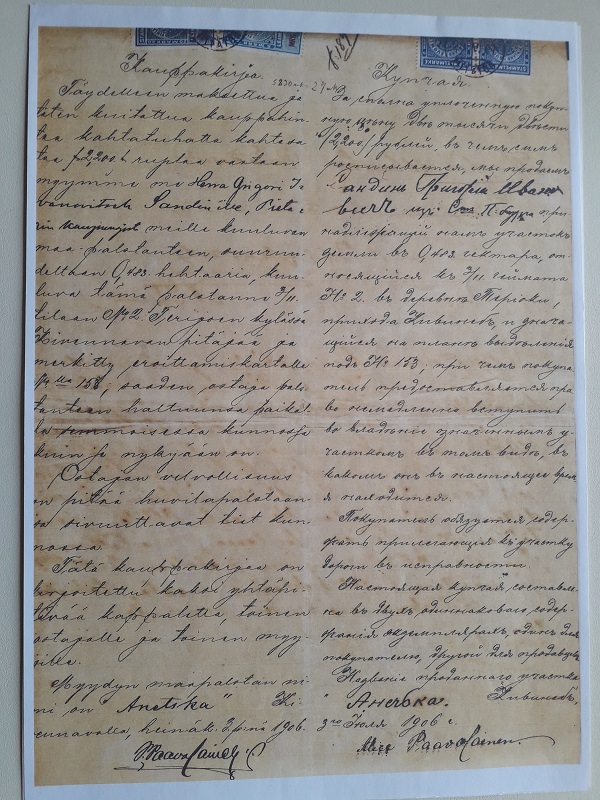 Kauppakirja.
Täydelleen maksettua ja
kuitattua kauppahin-
taa kahtatuhatta kahtasa-
taa 2,200 ruplaa vastaan
myymme me Herra Grigori I-
vanovitsch Sandin'ille, Pieta-
rin kaupungista meille kuuluvan
maa-palstansen, suuruu-
deltaan 0,483 hehtaaria, kuu-
luva tämä palstanne 3/11
tilaan No 2 Terijoen kylässä
Kivennavan pitäjää ja
merkitty eroittamiskartalle
No 153; saaden ostaja pals-
tansen haltuunsa paikal-
la semmoisessa kunnossa
kuin se nykyään on.
Ostajan velvollisuus
on pitää huvilapalstaan-
sa sivuuttavat tiet kun-
nossa.
Tätä kauppakirjaa on
kirjoitettu kaksi yhtäpi-
tävää kappaletta, toinen
ostajalle ja toinen myy-
jälle.
Myydyn maapalstan ni-
mi on "Anetska" Ki-
vennavalla, heinäk. 3 p:nä 1906.
Paavolainen
Купчая.
За сполна уплоченную покуп-
ную цѣну двѣ тысячи двѣсти
"2,200" рублей, въ чемъ симъ
росписывается, мы продаемъ
Сандинъ Григорій Ивано
вичъ изъ П-бурга при-
надлежащій намъ участокъ
земли въ 0,483 гектара, от-
носящійся къ 3/11 геймата
No 2. въ деревнѣ Теріоки,
прихода Кивинебъ, и знача-
щійся на планѣ выдѣленія
подъ No 153; при чемъ покупа-
тель предоставляется пра-
во немедленно вступить
во владѣніе означеннымъ у-
часткомъ въ томъ видѣ, въ
какомъ онъ въ настоящее врем-
я находится.
Покупатель обязуется содер-
жать прилегающія къ участку
дороги въ исправности.
Настоящая купчая составле-
на въ двухъ, одинаковаго содер-
жанія экземплярахъ, одинъ для
покупателю, другой для продавцевъ
Названіе проданнаго участка
"Анечька. Кивинебъ,
3го Іюля 1906 г.
Alice Paavolainen.